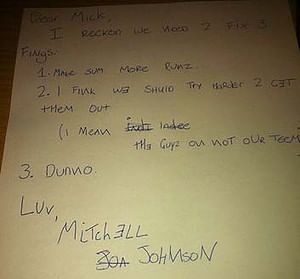 Dear Mick,
I Reckon we need 2 Fix 3
Fings.
1. Make sum more Runz...
2. I Fink we shuld try Harder 2 GET
them out
(I mean the Guyz on not our Team
3. Dunno.
Luv,
MITCHELL
JOHNSON